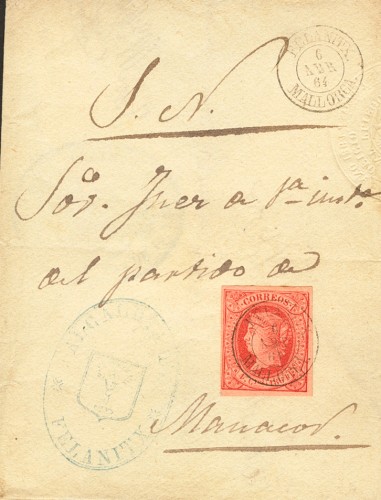 FELANITX.
6
ABR
64
MALLORCA.
S. N.
Sor. Juez de 1ª inst.
del partido de
CORREOS
Manacor.
FELANITX